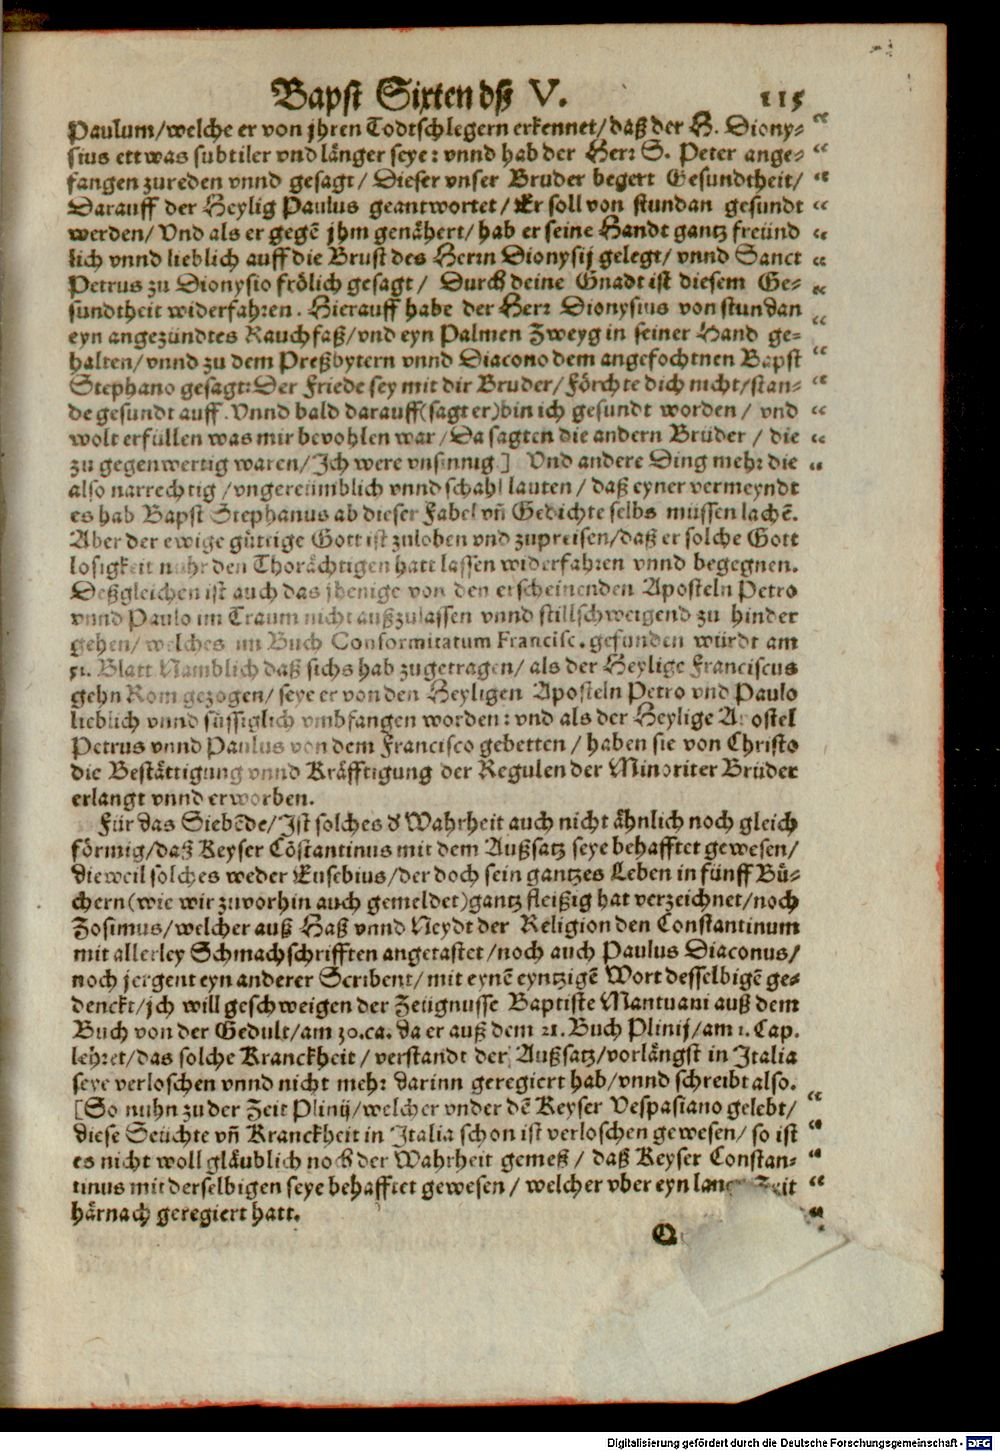 Bapst Sixten dß V. 115
Paulum/welche er von jhren Todtschlegern erkennet/daß der H. Diony- “
sius ettwas subtiler vnd länger seye: vnnd hab der Herr S. Peter ange- “
fangen zureden vnnd gesagt/ Dieser vnser Bruder begert Gesundtheit/ “
Darauff der Heylig Paulus geantwortet/ Er soll von stundan gesundt “
werden/ Vnd als er gegē jhm genähert/ hab er seine Handt gantz freünd “
lich vnnd lieblich auff die Brust des Herrn Dionysij gelegt/ vnnd Sanct “
Petrus zu Dionysio frölich gesagt/ Durch deine Gnadt ist diesem Ge- “
sundtheit widerfahren. Hierauff habe der Herr Dionysius von stundan “
eyn angezündtes Rauchfaß/vnd eyn Palmen Zweyg in seiner Hand ge- “
halten/ vnnd zu dem Preßbytern vnnd Diacono dem angefochtnen Bapst “
Stephano gesagt: Der Friede sey mit dir Bruder/ Förchte dich nicht/stan- “
de gesundt auff. Vnnd bald darauff (sagt er) bin ich gesundt worden/ vnd “
wolt erfüllen was mir bevohlen war/ Da sagten die andern Brüder / die “
zu gegenwertig waren/ Ich were vnsinnig.] Vnd andere Ding mehr die “
also narrechtig /vngereümblich vnnd schahl lauten / daß eyner vermeyndt
es hab Bapst Stephanus ab dieser Fabel vñ Gedichte selbs müssen lachē.
Aber der ewige gütige Gott ist zuloben vnd zupreisen/daß er solche Gott
losigkeit nuhr den Thorächtigen hatt lassen widerfahren vnnd begegnen.
Deßgleichen ist auch das jhenige von den erscheinenden Aposteln Petro
vnnd Paulo im Traum nicht außzulassen vnnd stillschweigend zu hinder
gehen/ welches im Buch Conformitatum Francisc. gefunden würdt am
51. Blatt Namblich daß sichs hab zugetragen/ als der Heylige Franciscus
gehn Rom gezogen/ seye er von den Heyligen Aposteln Petro vnd Paulo
lieblich vnnd süssiglich vmbfangen worden: vnd als der Heylige Apostel
Petrus vnnd Paulus von dem Francisco gebetten / haben sie von Christo
die Bestättigung vnnd Kräfftigung der Regulen der Minoriter Brüder
erlangt vnnd erworben.
Für das Siebēde/ Ist solches d' Wahrheit auch nicht ähnlich noch gleich
förmig/daß Keyser Cōstantinus mit dem Außsatz seye behafftet gewesen/
dieweil solches weder Eusebius/der doch sein gantzes Leben in fünff Bü-
chern (wie wir zuvorhin auch gemeldet) gantz fleißig hat verzeichnet/noch
Zosimus/welcher auß Haß vnnd Neydt der Religion den Constantinum
mit allerley Schmachschrifften angetastet/noch auch Paulus Diaconus/
noch jergent eyn anderer Scribent/ mit eynē eyntzigē Wort desselbigē ge-
denckt/ich will geschweigen der Zeügnusse Baptiste Mantuani auß dem
Buch von der Gedult/am 30.ca. da er auß dem 21. Buch Plinij/am 1. Cap.
lehret/das solche Kranckheit / verstandt der Außsatz/vorlängst in Italia
seye verloschen vnnd nicht mehr darinn geregiert hab/vnnd schreibt also.
[So nuhn zu der Zeit Plinij/welcher vnder dē Keyser Vespasiano gelebt/ “
diese Seüchte vñ Kranckheit in Italia schon ist verloschen gewesen/ so ist “
es nicht woll gläublich noch der Wahrheit gemeß / daß Keyser Constan- “
tinus mit derselbigen seye behafftet gewesen / welcher vber eyn lange Zeit “
härnach geregiert hatt. “
Q
Digitalisierung gefördert durch die Deutsche Forschungsgemeinschaft - DFG